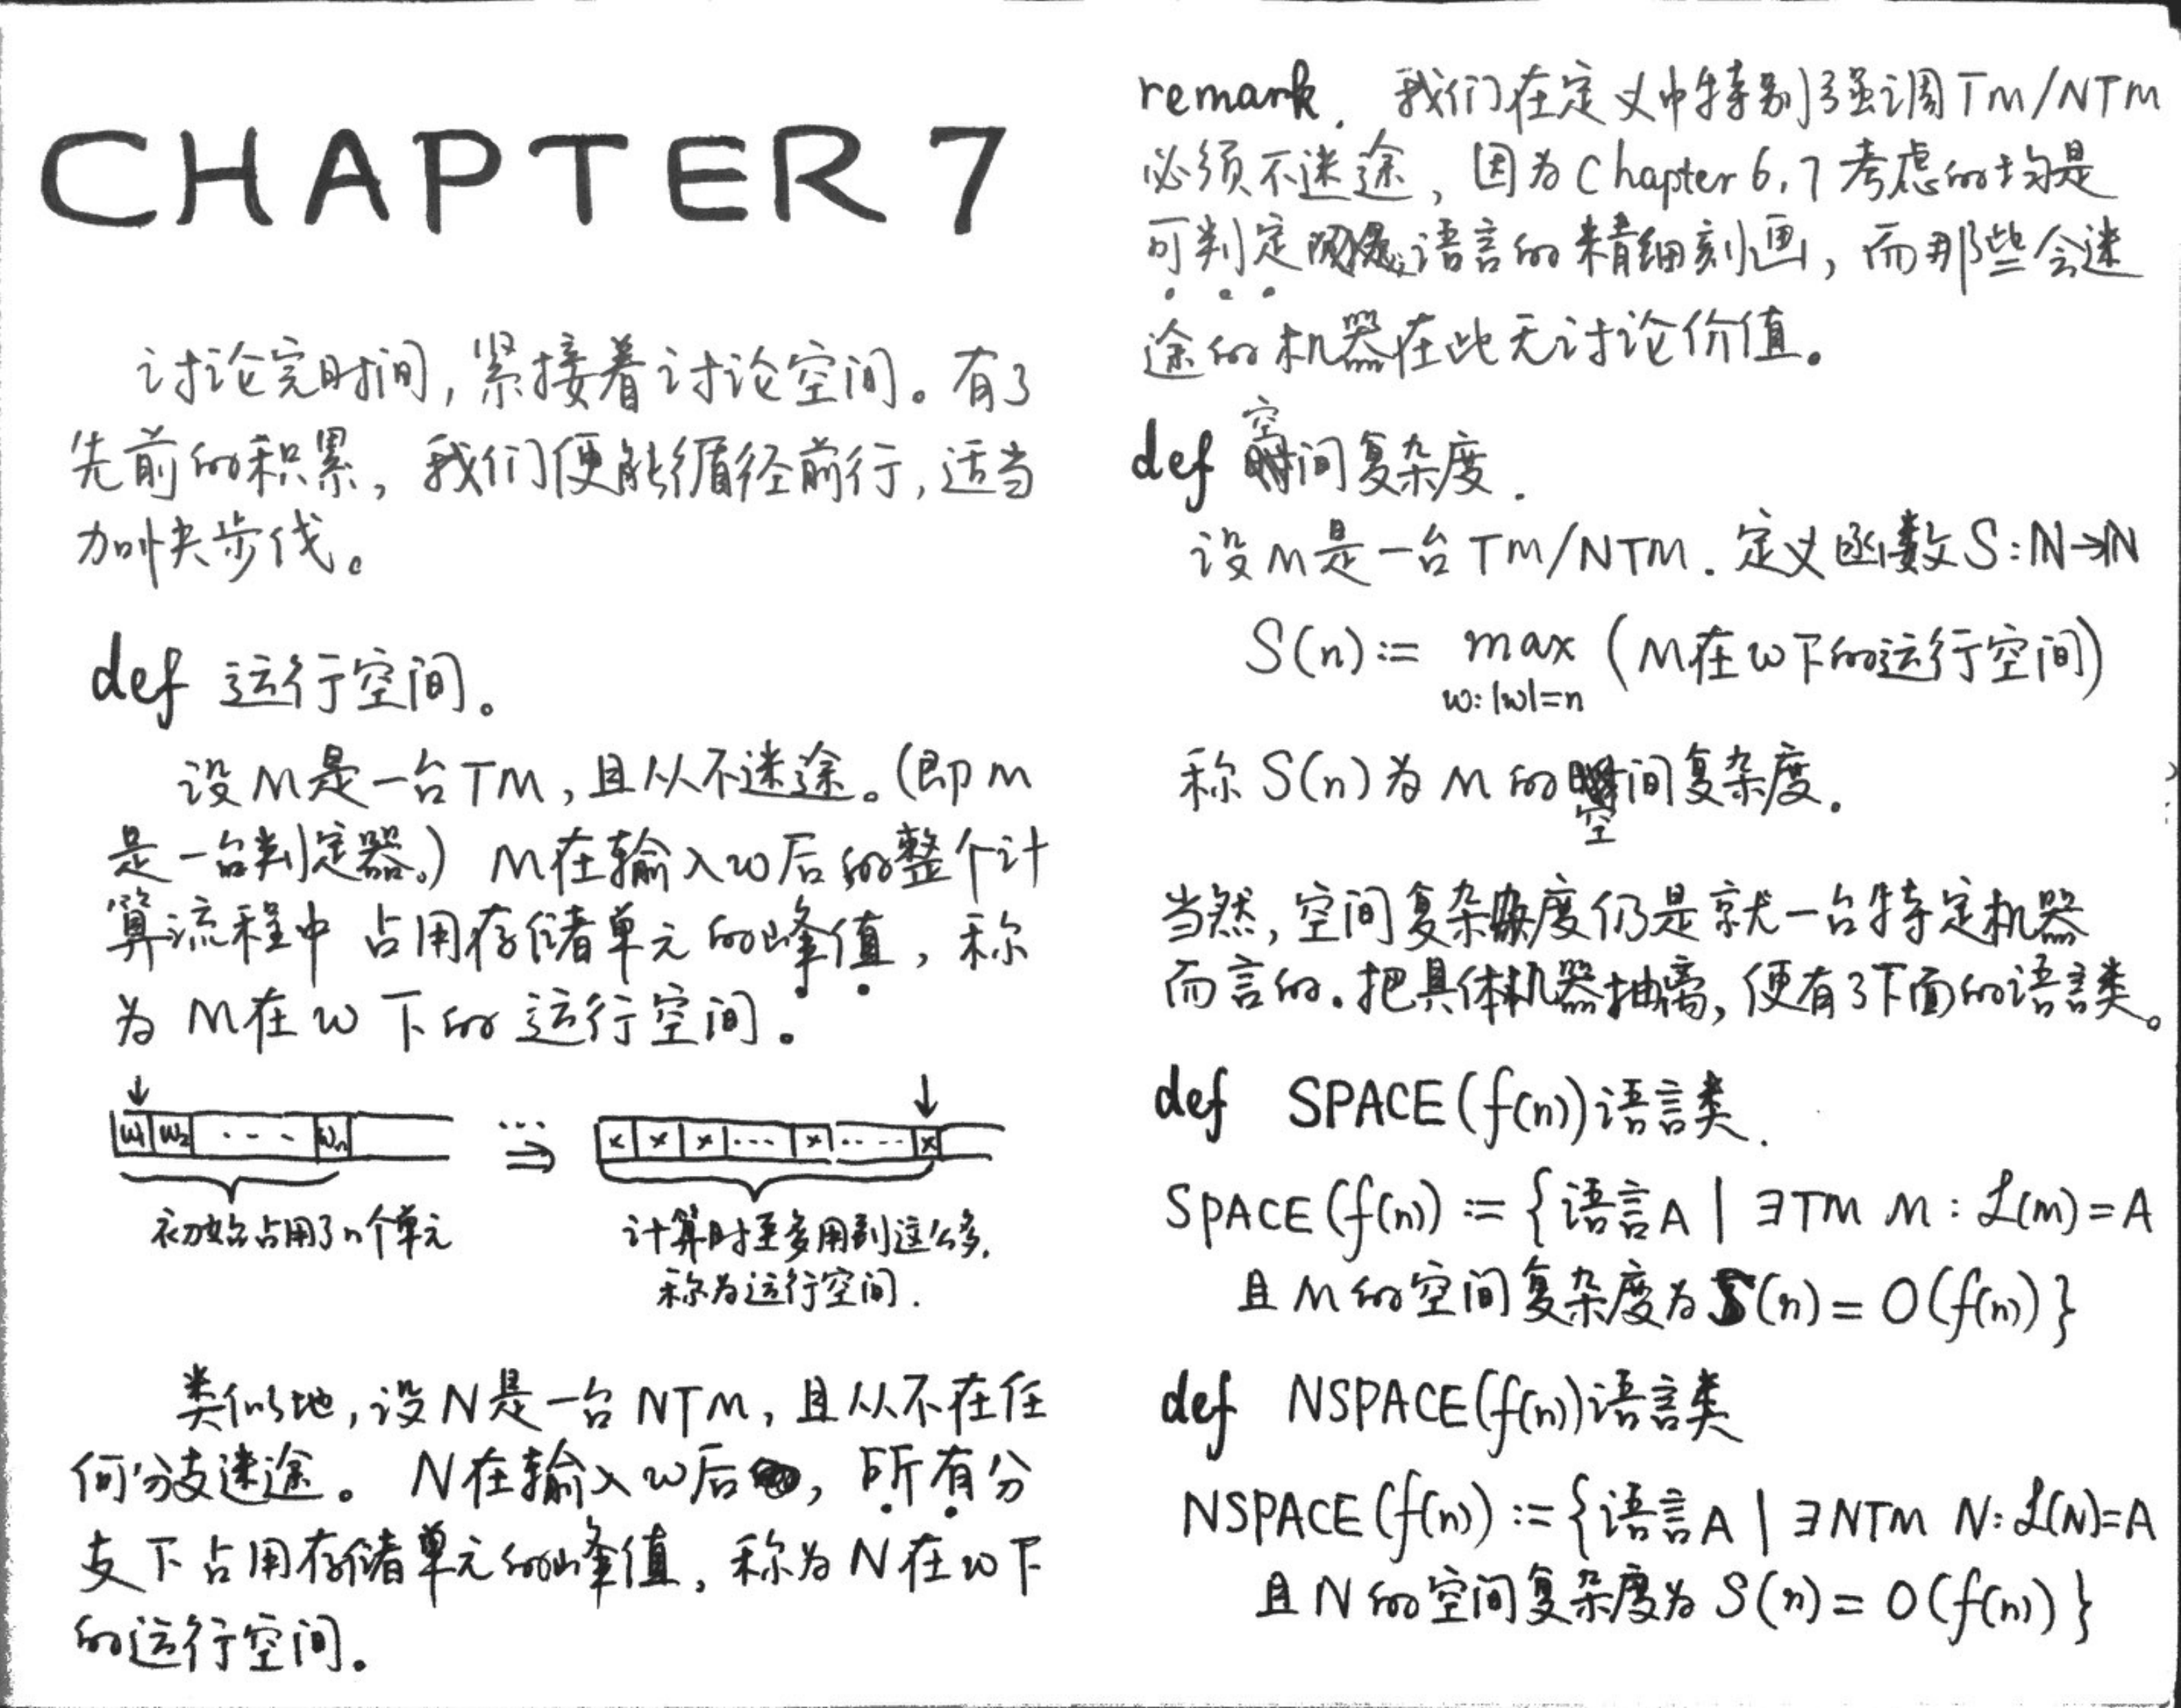 CHAPTER 7
讨论完时间，紧接着讨论空间。有了
先前的积累，我们便能循径前行，适当
加快步伐。
def 运行空间。
设M是一台TM，且从不迷途。（即M
是一台判定器。）M在输入w后的整个计
算流程中 占用存储单元的峰值，称
为 M在w下的运行空间。
w₁ w₂ ··· wₙ
... ⇒
x x x ... x ... x
初始占用了n个单元
计算时至多用到这么多，
称为运行空间.
类似地，设N是一台NTM，且从不在任
何分支迷途。N在输入w后，所有分
支下占用存储单元的峰值，称为N在w下
的运行空间。
remark. 我们在定义中特别强调TM/NTM
必须不迷途，因为Chapter 6,7考虑的均是
可判定语言的精细刻画，而那些会迷
途的机器在此无讨论价值。
def 空间复杂度.
设M是一台TM/NTM. 定义函数S:ℕ→ℕ
S(n):= max (M在w下的运行空间)
w:|w|=n
称S(n)为M的空间复杂度.
当然，空间复杂度仍是就一台特定机器
而言的. 把具体机器抽离，便有了下面的语言类。
def SPACE(f(n))语言类.
SPACE(f(n)) := {语言A | ∃TM M : ℒ(M)=A
且M的空间复杂度为S(n)=O(f(n))}
def NSPACE(f(n))语言类
NSPACE(f(n)) := {语言A | ∃NTM N: ℒ(N)=A
且N的空间复杂度为S(n)=O(f(n))}